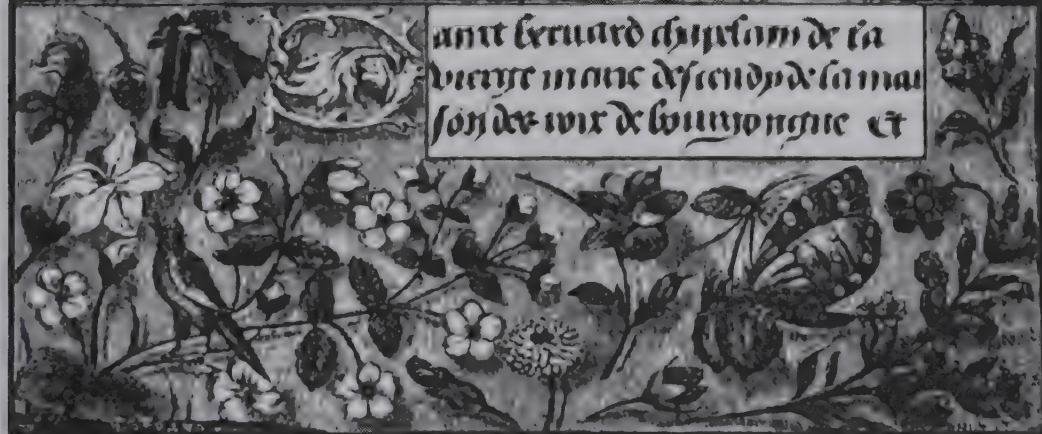 aint bernard chapelain de la
vierge marie descendy de la mai
son des roix de bourgongne Et